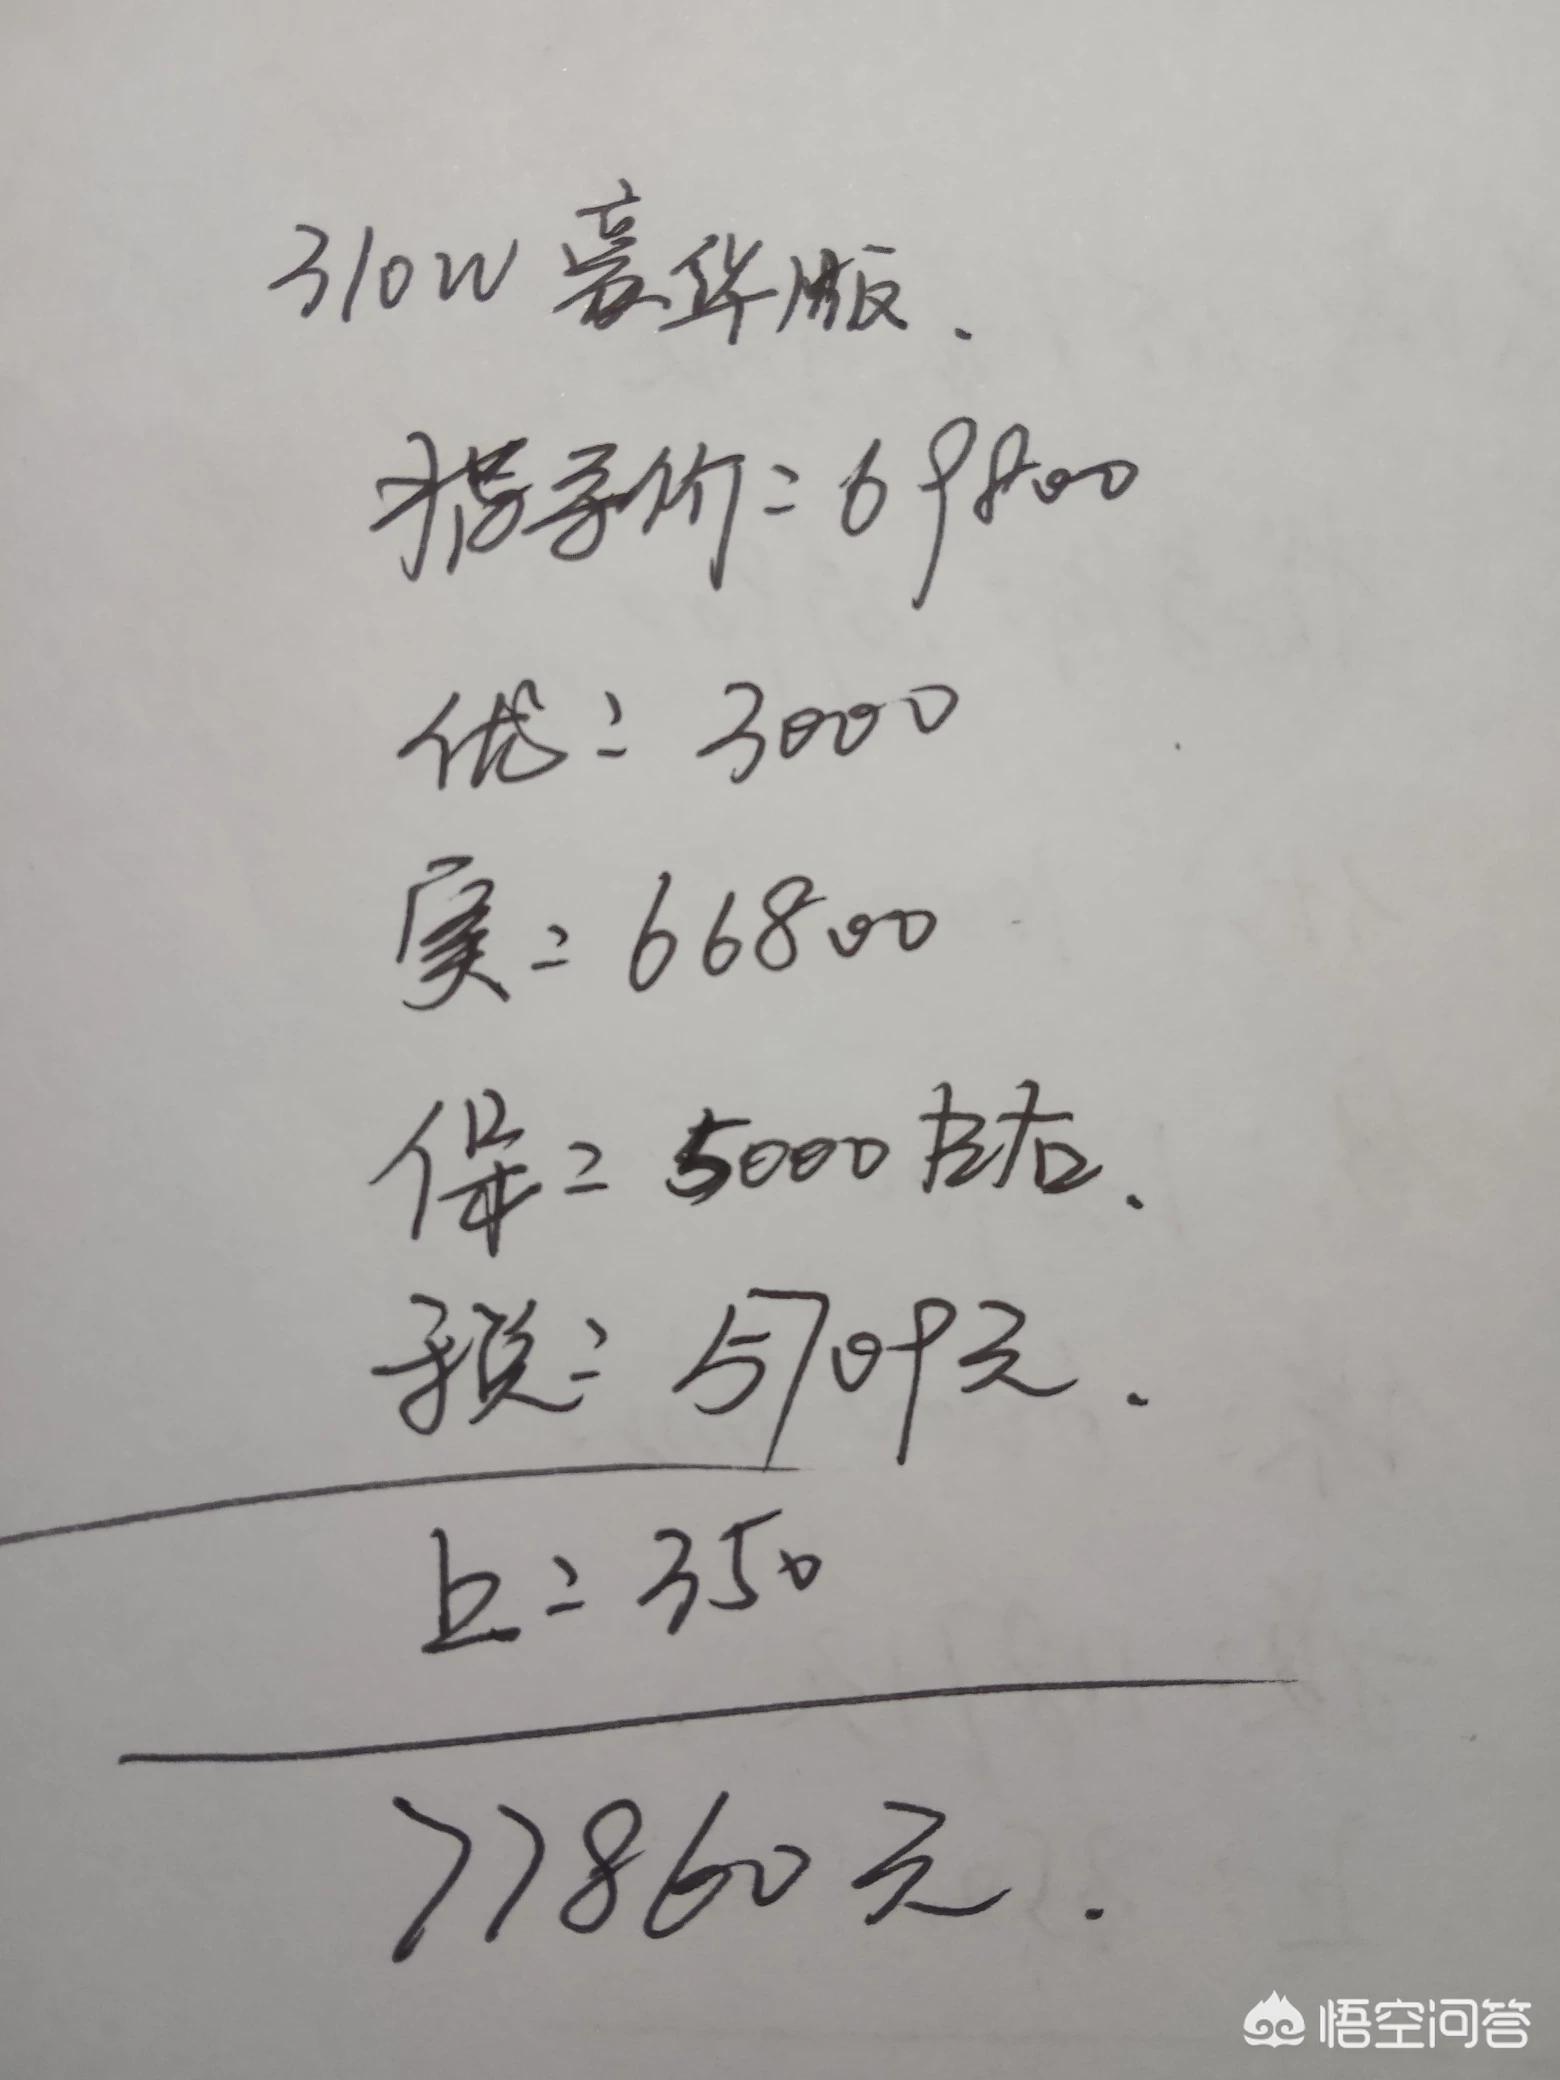 310W豪华版.
指导价=69800
优=3000
实=66800
保=5000左右.
税=5709元.
上=350
77860元.
悟空问答